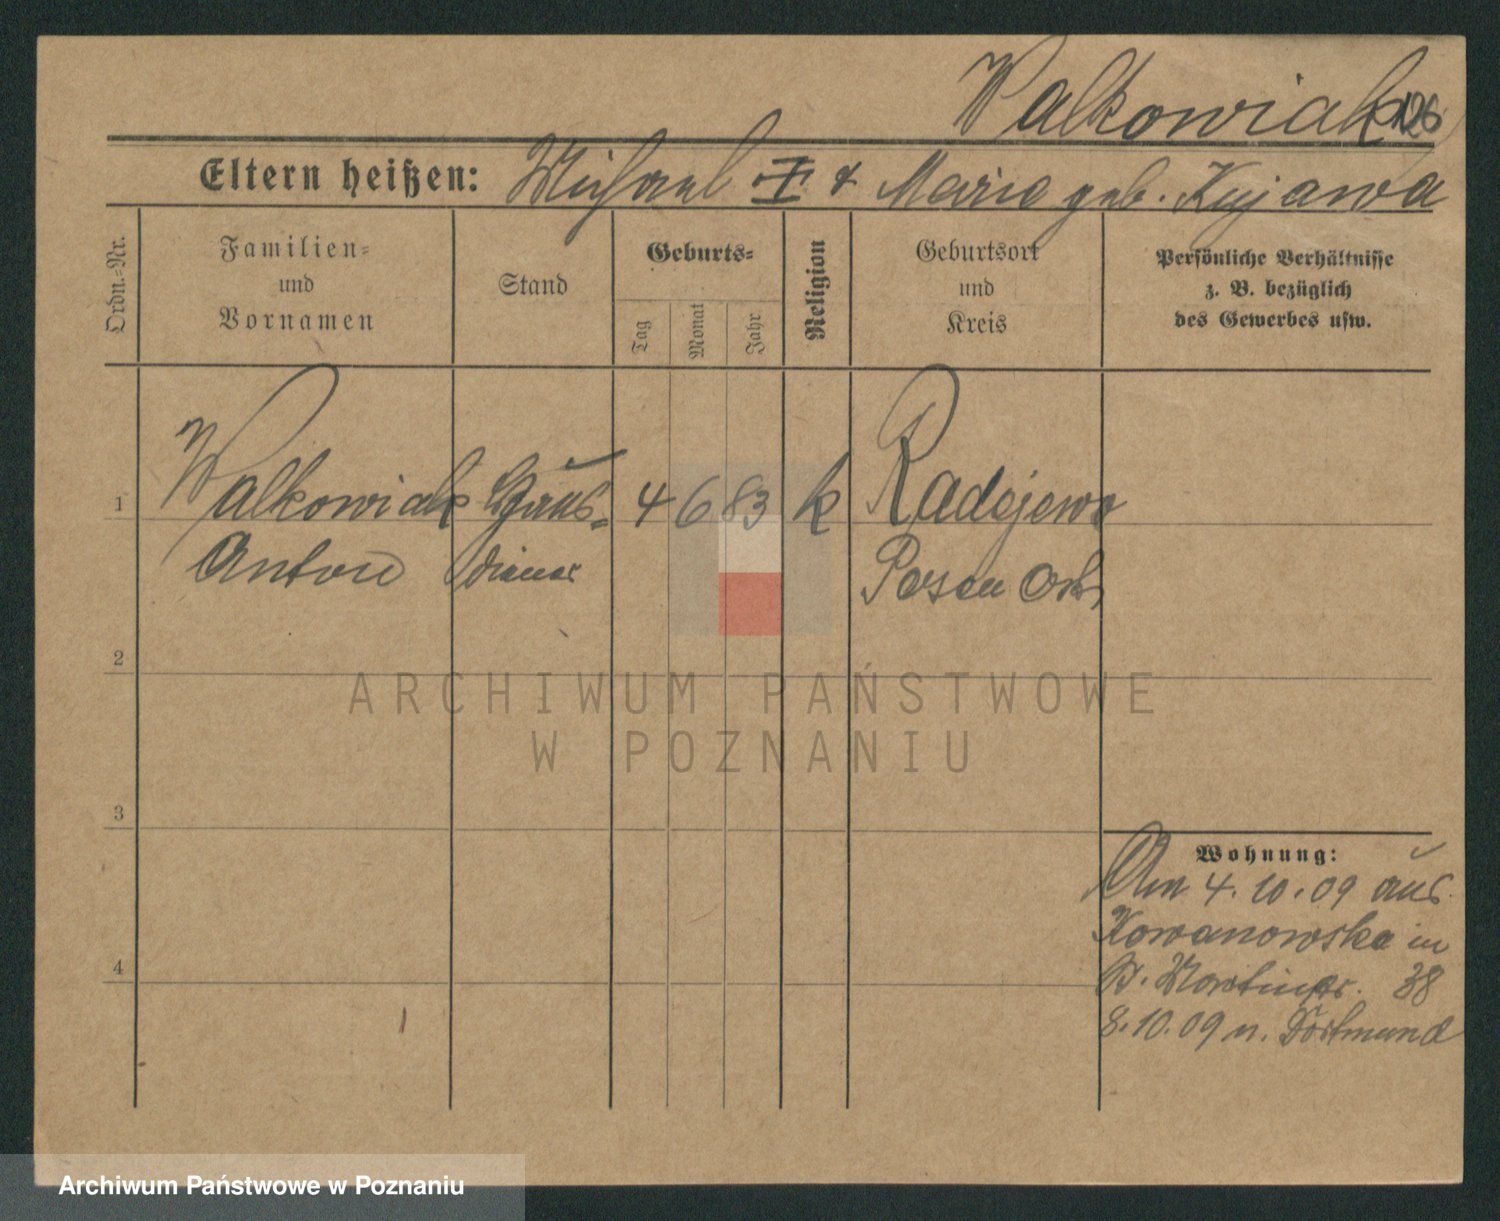 Walkowiak 126
Eltern heißen: Michael I & Marie geb. Kujawa
Ordn.=Nr.
Familien=
und
Vornamen
Stand
Geburts=
Tag
Monat
Jahr
Religion
Geburtsort
und
Kreis
Persönliche Verhältnisse
z. B. bezüglich
des Gewerbes usw.
1
Walkowiak Haus= 4 6 83 k Radojewo
Anton diener Posen Ost
2
ARCHIWUM PAŃSTWOWE
W POZNANIU
3
Wohnung:
Am 4.10.09 aus
Kowanowsko in
St. Martinstr. 38
4
8.10.09 n. Dortmund
Archiwum Państwowe w Poznaniu